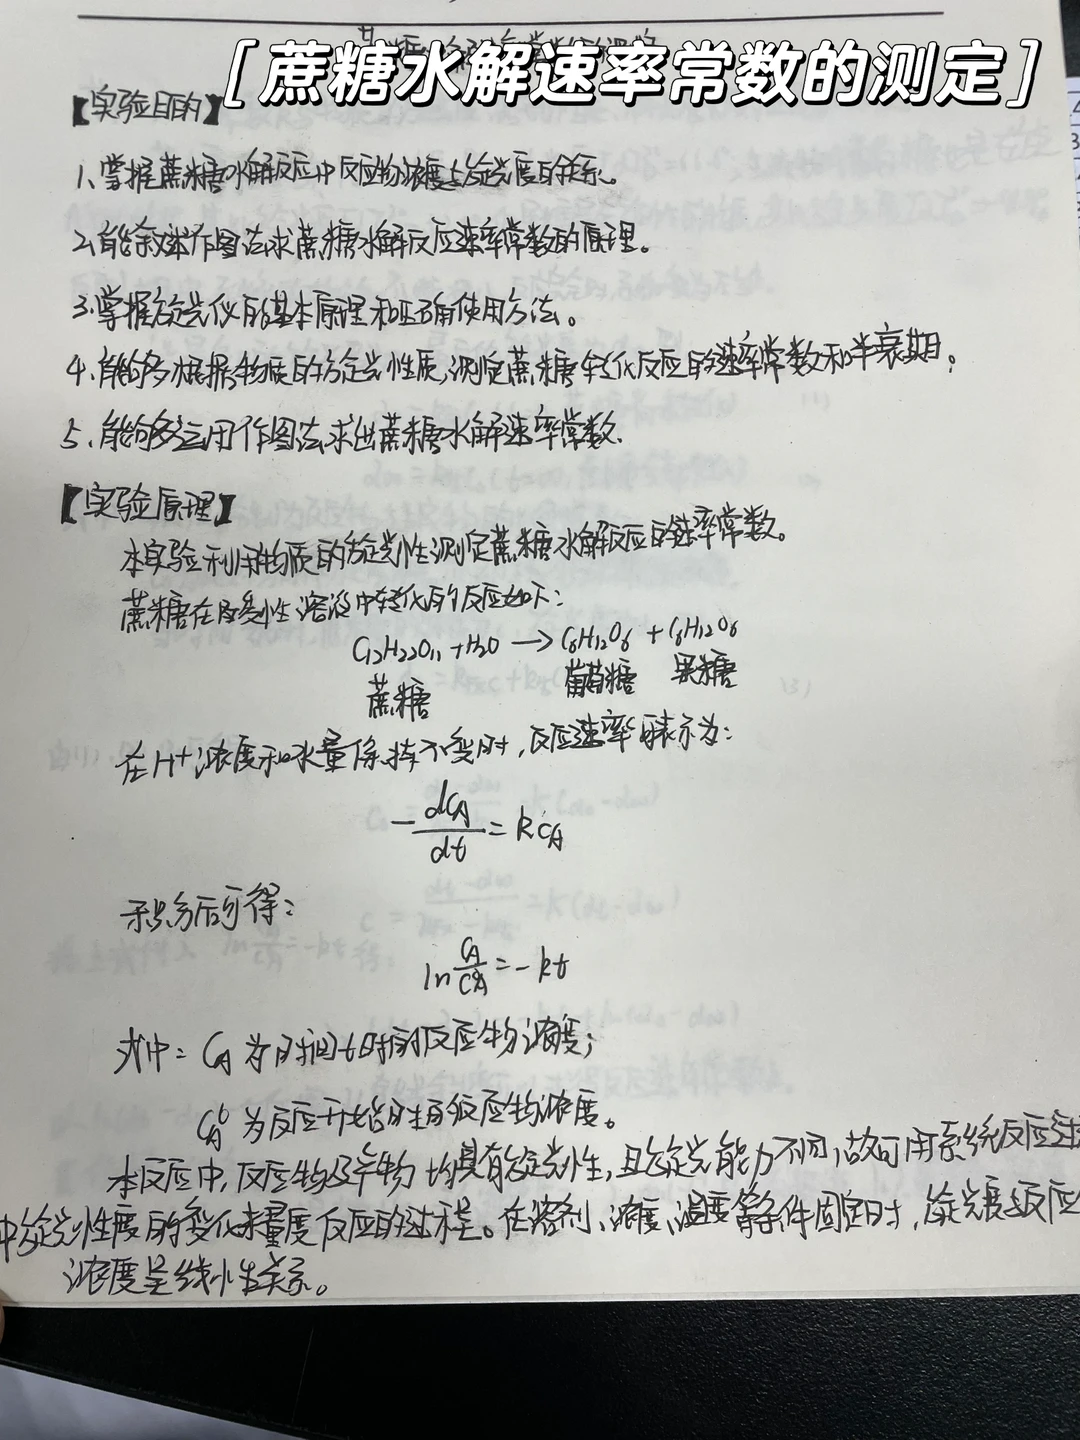 [蔗糖水解速率常数的测定]
【实验目的】
1、掌握蔗糖水解反应中反应物浓度与旋光度的关系。
2、能叙述作图法求蔗糖水解反应速率常数的原理。
3、掌握旋光仪的基本原理和正确使用方法。
4、能够根据物质的旋光性质,测定蔗糖转化反应的速率常数和半衰期。
5、能够运用作图法求出蔗糖水解速率常数.
【实验原理】
本实验利用物质的旋光性测定蔗糖水解反应的速率常数。
蔗糖在酸性溶液中转化的反应如下:
C12H22O11 + H2O → C6H12O6 + C6H12O6
蔗糖 葡萄糖 果糖
在H+浓度和水量保持不变时,反应速率表示为:
-dCA/dt = kCA
积分后可得:
ln CA/C⁰A = -kt
式中: CA为时间t时的反应物浓度;
C⁰A为反应开始时的反应物浓度。
本反应中,反应物及产物均具有旋光性,且旋光能力不同,故可用系统反应过
中旋光性度的变化来量度反应的过程。在溶剂、浓度、温度等条件固定时,旋光度与反应
浓度呈线性关系。